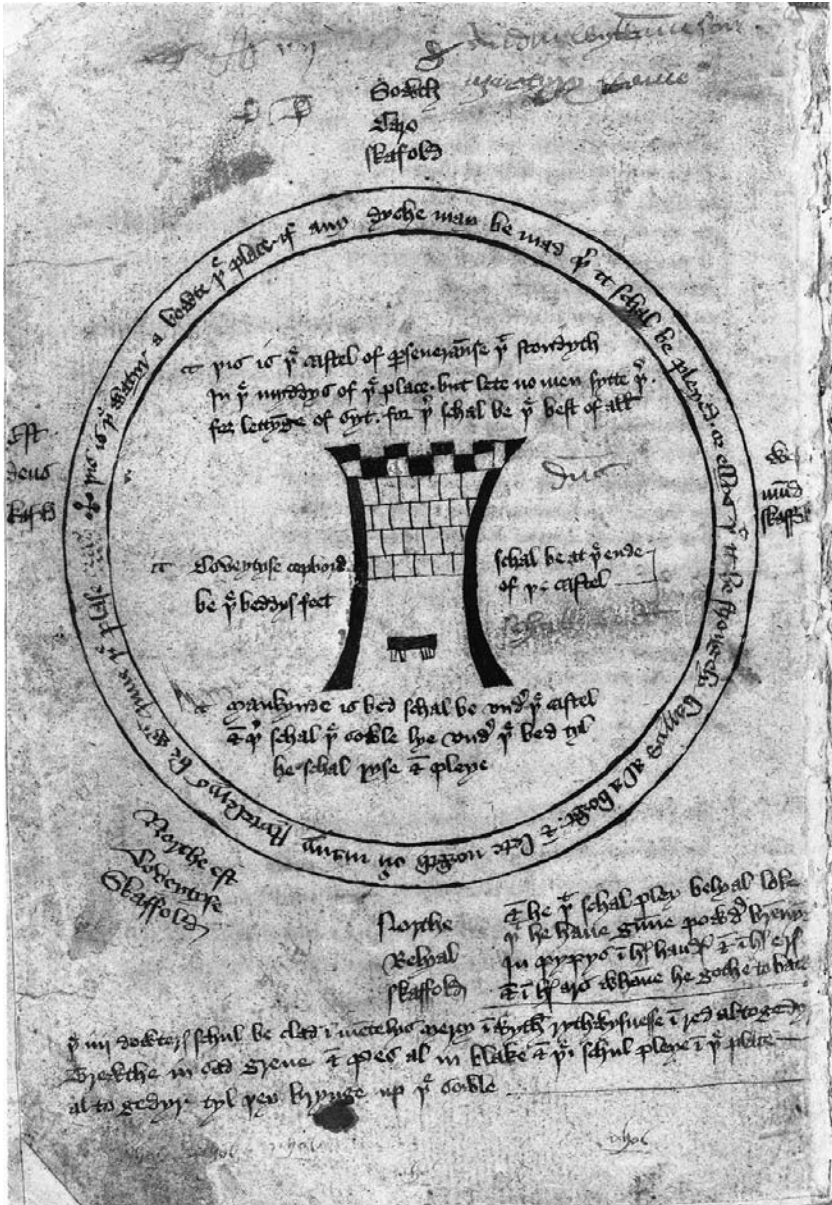 Sowth
Caro
skafold
þis is þᵉ watyr a bowte þᵉ place if any dyche may be mad þʳ it schal be pleyed or ellys þᵗ it be strongely barryd al a bowt & lete nowth oūyr many stytelerys be wᵗ inne þᵉ plase
þis is þᵉ castel of p̄seueraūse þᵗ stondyth
In þᵉ myddys of þᵉ place · but lete no men sytte þʳ ·
for lettȳge of syt · for þʳ schal be þᵉ best of all
Est
deus
skafold
mūd
skaffold
Coveytyse copbord
be þᵉ beddys feet
schal be at þᵉ ende
of þe castel
mankynde is bed schal be vndʳ þᵉ castel
& þʳ schal þᵉ sowle lye vndʳ þᵉ bed tyl
he schal ryse & pleye
Northe est
Coveytyse
Skaffold
Northe
Belyal
skaffold
& he þᵗ schal pley belyal loke
þᵗ he haue gūne powdʳ brēnyng
In pypys ī hys handys & ī hys erys
& ī hys ars whāne he gothe to batayl
þᵉ iiij dowterys schul be clad ī mētelys mercy ī wyth rythwysnesse ī red altogedyr
Trewthe in sad grene & pes al in blake & þᵉi schul pleye ī þᵉ place
al to gedyr tyl þey brynge up þᵉ sowle